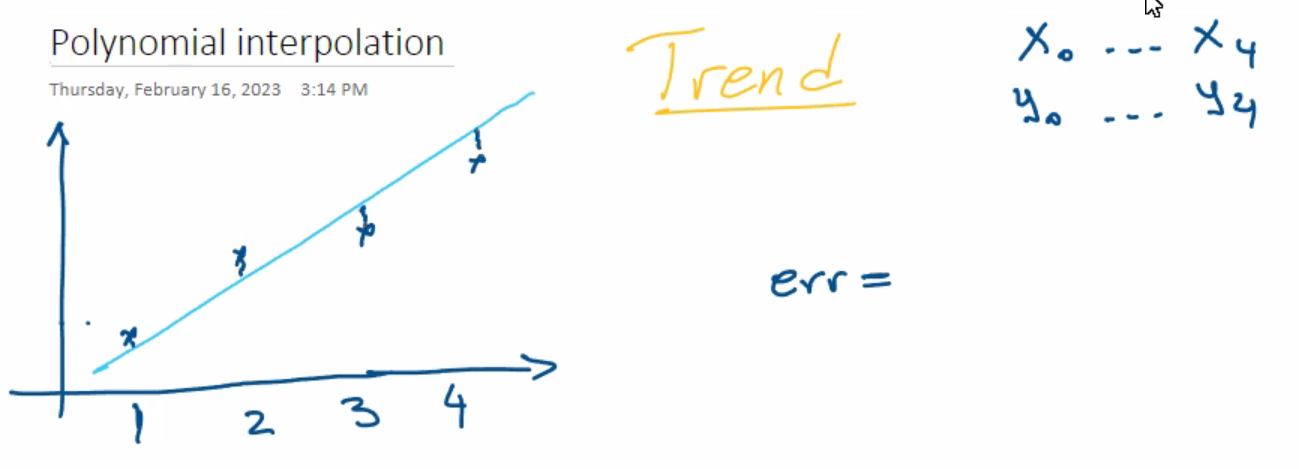 Polynomial interpolation
Thursday, February 16, 2023 3:14 PM
Trend
x₀ --- x₄
y₀ --- y₄
err =
1 2 3 4